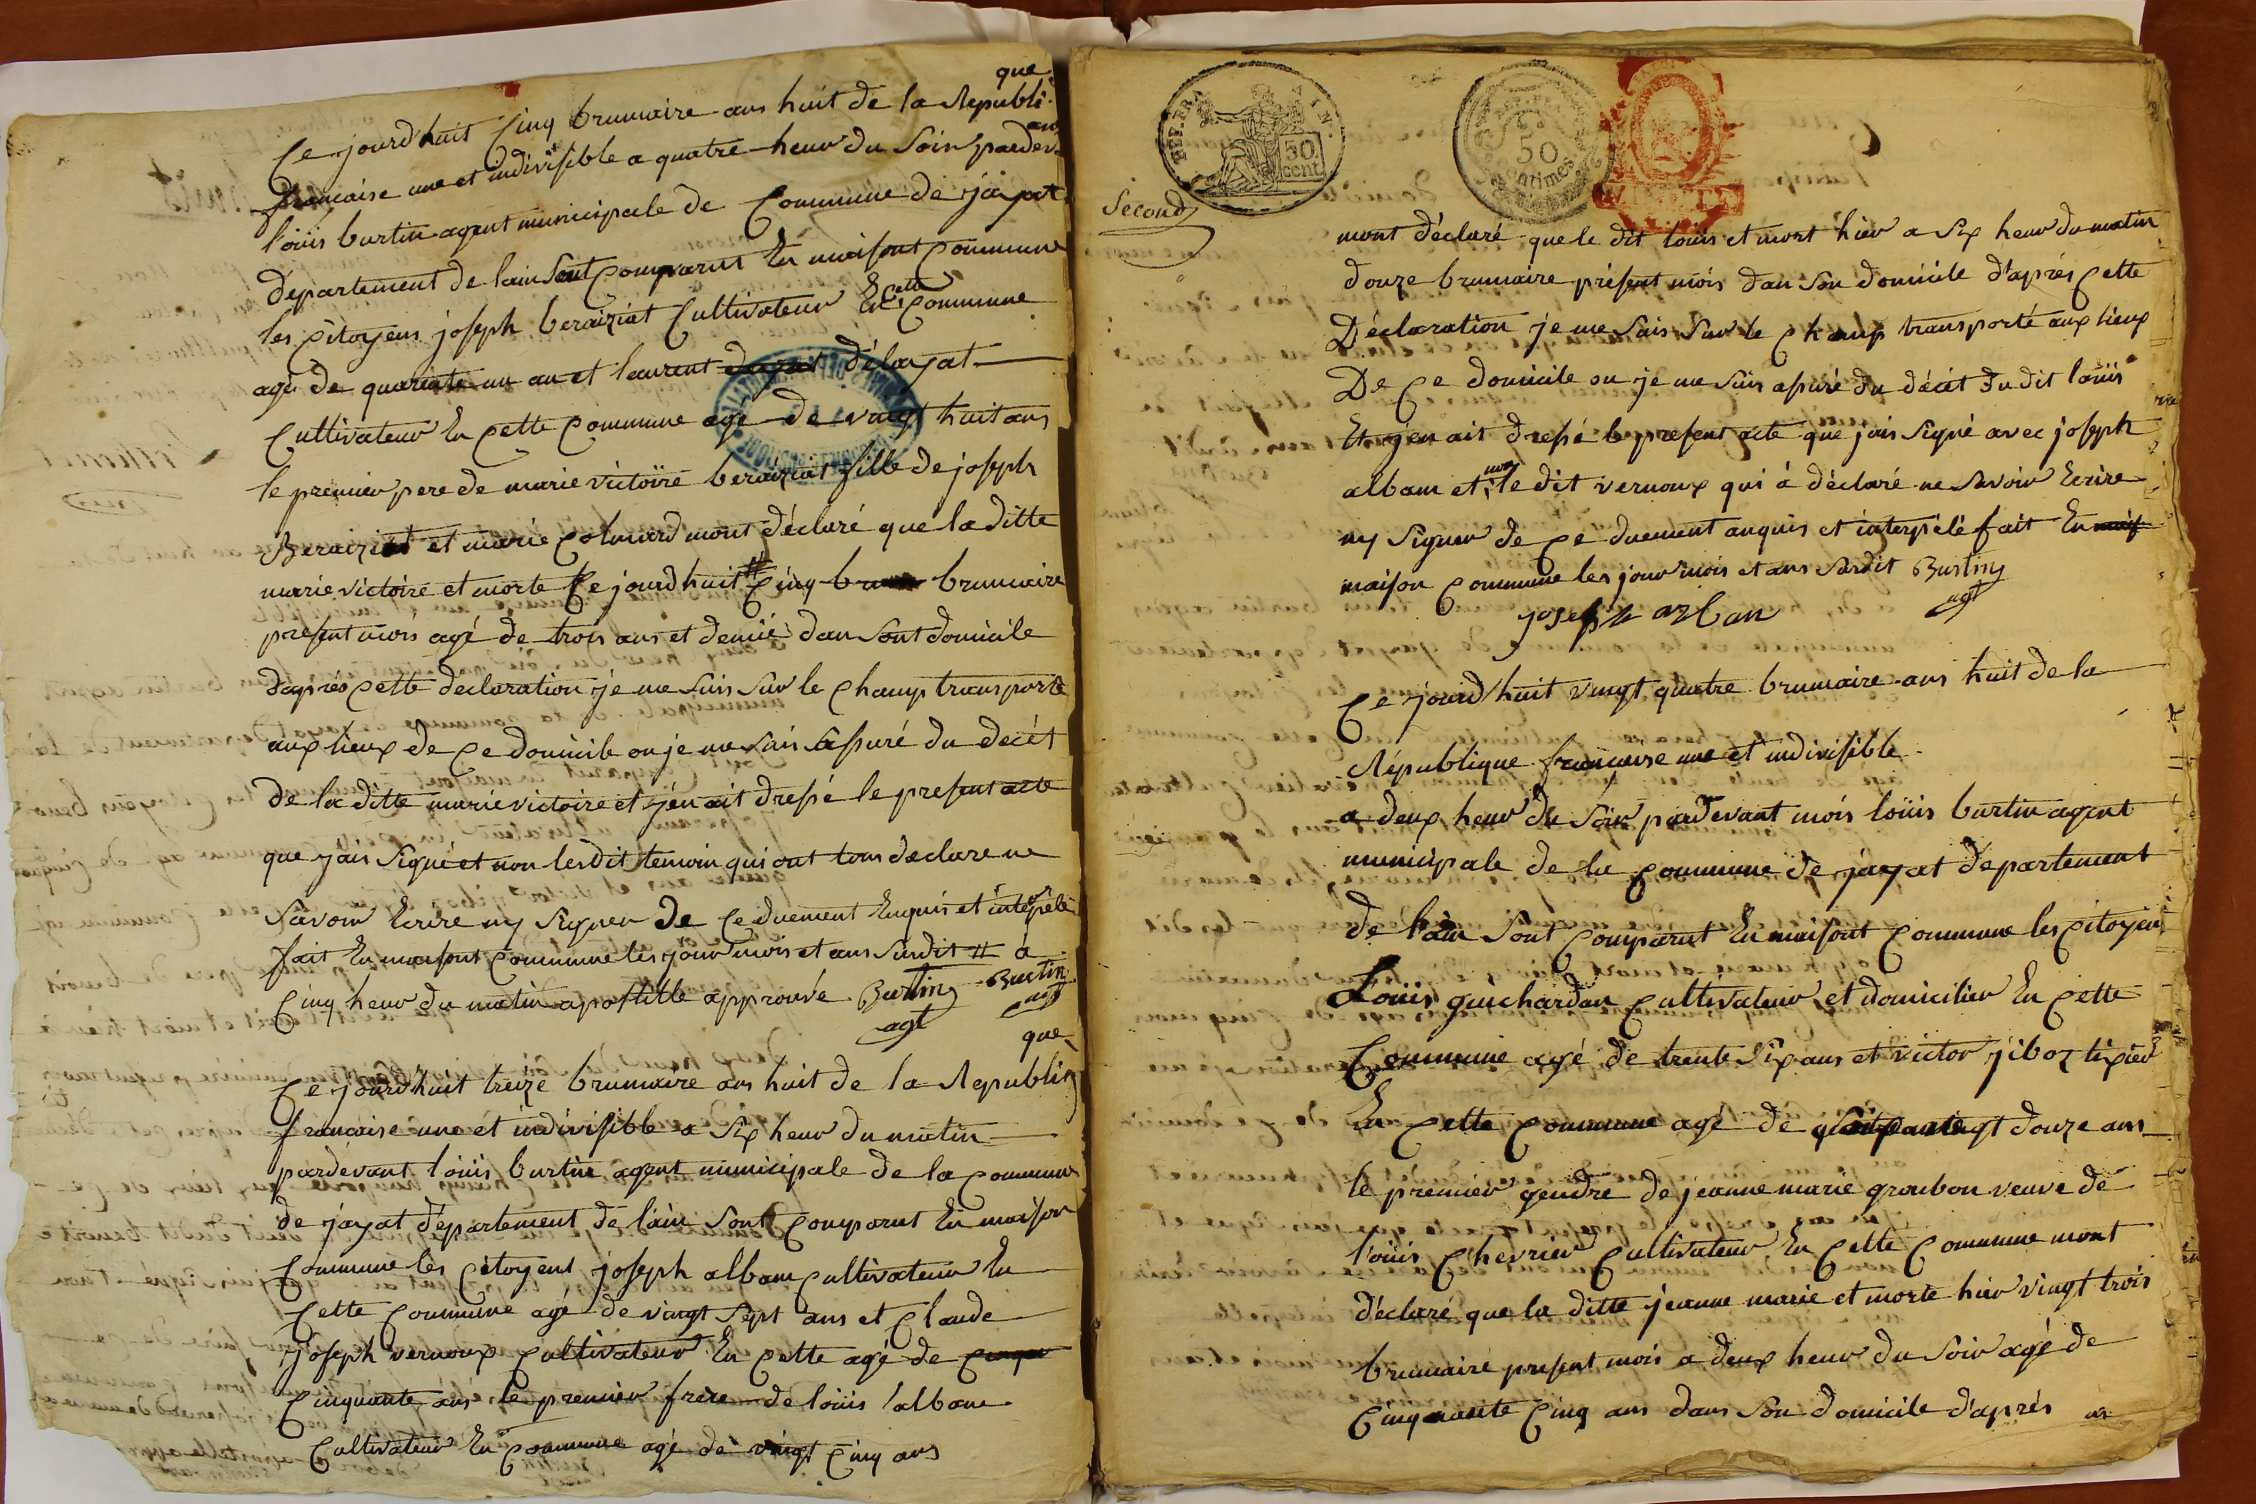 que
Ce jourdhuit Cinq brumaire ans huit de la Republi
francaise une et indivisible a quatre heur du Soir pardev
an
loüis burtin agent municipale de Commune de jayat
département de lain Sont Comparut En maisont Commune
les Citoyens joseph beraiziat Cultivateur En Cette Commune
agé de quarente un an et laurent délayat
Cultivateur En Cette Commune agé de vingt huit ans
le premier pere de marie victoire beraiziat fille de joseph
Beraiziat et marie Colmard mont déclaré que la ditte
marie victoire et morte Ce jourdhuit # Cinq brumaire
présent mois agé de trois ans et demie dan Sont domicile
daprés Cette declaration je me Suis Sur le Champ transporté
aux lieux de Ce domicile ou je me Suis assuré du decét
de la ditte marie victoire et jen ait dressé le présent acte
que jais Signé et non lesdit temoin qui ont tous declare ne
Savoir Ecrire ny Signer de Ce duement Enquis et interpélé
fait En maisont Commune les jour mois et ans Susdit # a
Cinq heur du matin apostille approuvé Burtin Burtin
agt agt
que
Ce jourdhuit treize brumaire ans huit de la Republi
francaise une et indivisible a Six heur du matin
pardevant loüis burtin agent municipale de la Commune
de jayat département de lain Sont Comparut En maison
Commune les Citoyent joseph alban Cultivateur En
Cette Commune agé de vingt Sept ans et Claude
joseph vernoux Cultivateur En Cette agé de
Cinquante ans le premier frere de loüis alban
Cultivateur En Commune agé de vingt Cinq ans
REP. FRA
50
cent.
50
Centimes
Second
mont déclaré que le dit louis et mort hier a Six heur du matin
douze brumaire présent mois dan Son domicile d'aprés Cette
Déclaration je me Suis Sur le Champ transporté aux lieux
De Ce domicile ou je me Suis assuré du décét du dit loüis
Et jen ait dressé le présent acte que jais Signé avec joseph
alban et non le dit vernoux qui á déclaré ne Savoir Ecrire
ny Signer de Ce duement anquis et interpélé fait En
maison Commune les jour mois et ans Susdit Burtin
joseph alban agt
Ce jourdhuit vingt quatre brumaire ans huit de la
République française une et indivisible
a deux heur du Soir pardevant mois loüis burtin agent
municipale de la Commune de jayat département
de lain Sont Comparut En maisont Commune les Citoyens
Loüis guichardan Cultivateur et domicilier En Cette
Commune agé de trente Six ans et victor jiboz tixier
En Cette Commune agé de douze ans
le premier gendre de jeanne marie groubon veuve de
loüis Chevrier Cultivateur En Cette Commune mont
déclaré que la ditte jeanne marie et morte hier vingt trois
brumaire présent mois a deux heur du Soir agé de
Cinquante Cinq ans dans Son domicile d'aprés